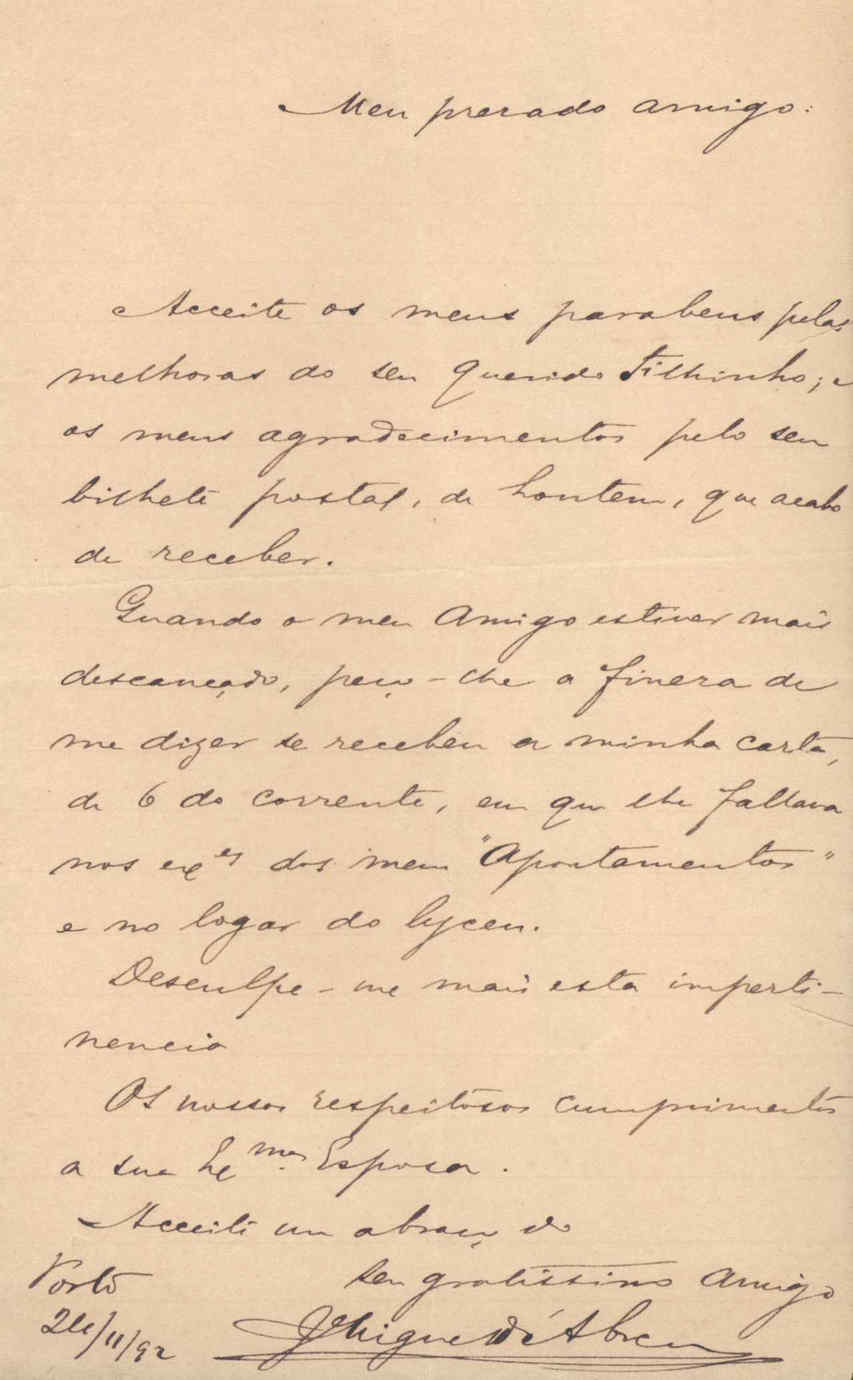 Meu presado amigo:
Acceite os meus parabens pelas
melhoras do seu querido Filhinho; e
os meus agradecimentos pelo seu
bilhete postal, de hontem, que acabo
de receber.
Quando o meu Amigo estiver mais
descançado, peço-lhe a fineza de
me dizer se recebeu a minha carta,
de 6 do corrente, em que lhe fallava
nos ex.es dos meus "Apontamentos"
e no logar do lyceu.
Desculpe-me mais esta imperti-
nencia
Os nossos respeitosos cumprimentos
a sua Ex.ma Esposa.
Acceite um abraço do
seu gratissimo Amigo
Porto
24/11/92
J Miguel d'Abreu